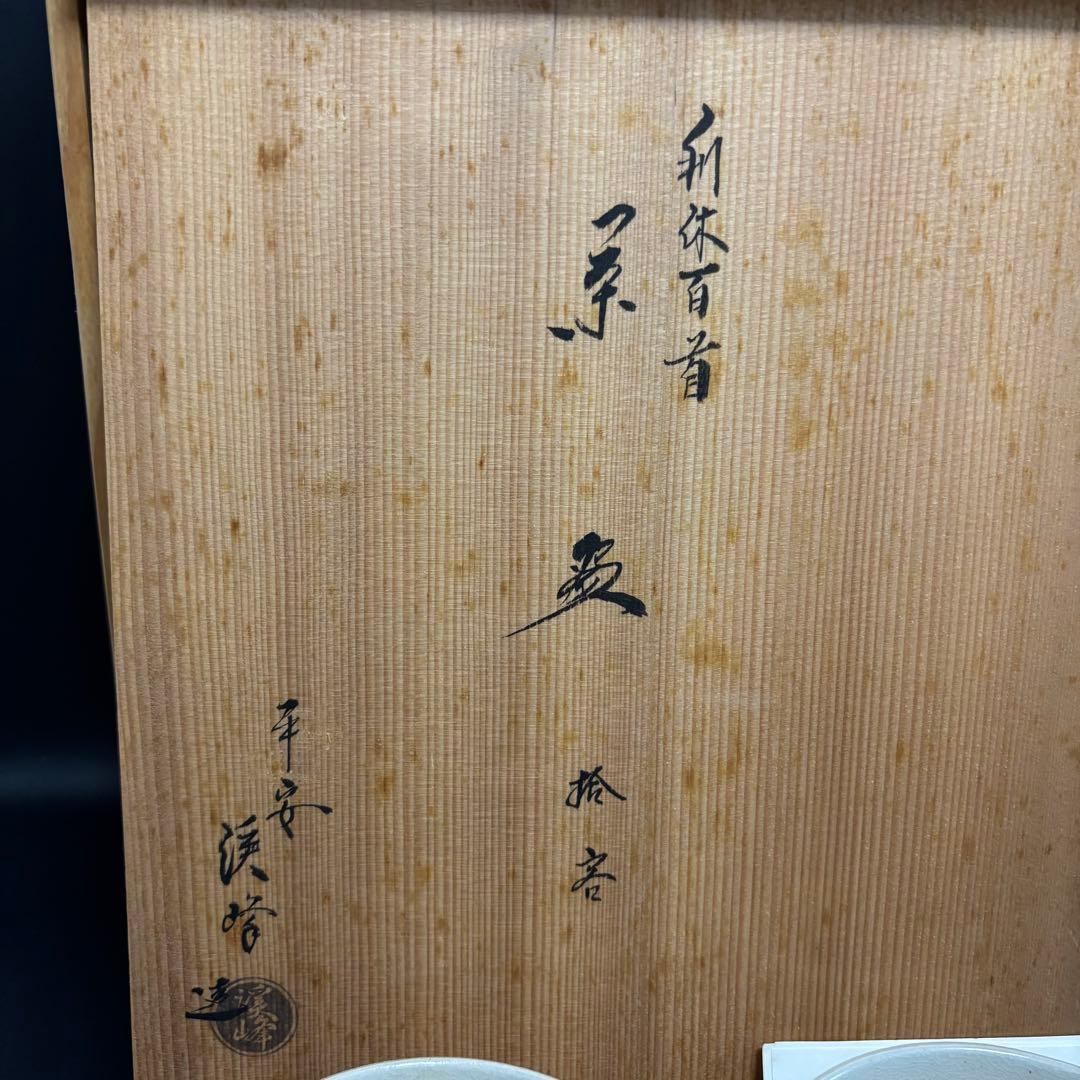 利休百首
菓盌 拾客
平安
渓峰
造
渓峰